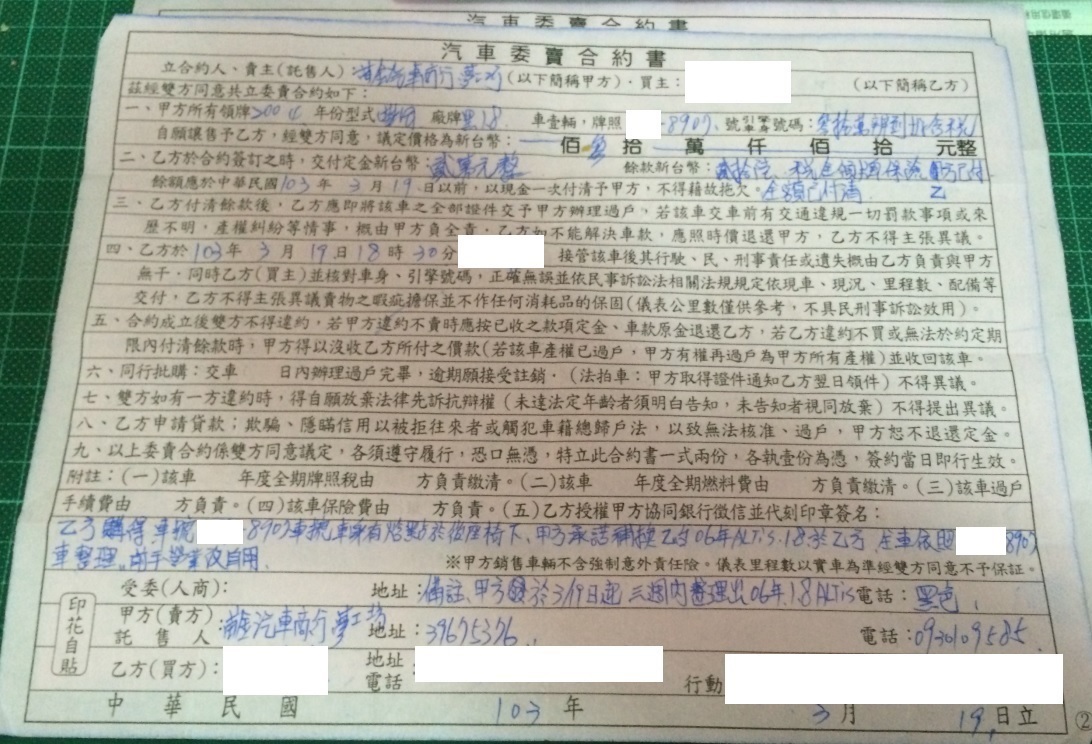 汽車委賣合約書
汽車委賣合約書
立合約人、賣主(託售人): 汽車商行 夢工坊 (以下簡稱甲方)‧買主: (以下簡稱乙方)
茲經雙方同意共立委賣合約如下:
一、甲方所有領牌2004年份型式 廠牌 1.8 車壹輛,牌照 -8907 號引擎車身號碼:
自願讓售予乙方,經雙方同意,議定價格為新台幣: 佰 拾 萬 仟 佰 拾 元整
二、乙方於合約簽訂之時,交付定金新台幣:貳萬元整 餘款新台幣: 保險
餘額應於中華民國103年3月19日以前,以現金一次付清予甲方,不得藉故拖欠。全額已付清 乙
三、乙方付清餘款後,乙方應即將該車之全部證件交予甲方辦理過戶,若該車交車前有交通違規一切罰款事項或來
歷不明,產權糾紛等情事,概由甲方負全責;乙方如不能解決車款,應照時價退還甲方,乙方不得主張異議。
四、乙方於103年3月19日18時30分 接管該車後其行駛、民、刑事責任或遺失概由乙方負責與甲方
無干‧同時乙方(買主)並核對車身、引擎號碼,正確無誤並依民事訴訟法相關法規規定依現車、現況、里程數、配備等
交付,乙方不得主張異議賣物之瑕疵擔保並不作任何消耗品的保固(儀表公里數僅供參考,不具民刑事訴訟效用)。
五、合約成立後雙方不得違約,若甲方違約不賣時應按已收之款項定金、車款原金退還乙方,若乙方違約不買或無法於約定期
限內付清餘款時,甲方得以沒收乙方所付之價款(若該車產權已過戶,甲方有權再過戶為甲方所有產權)並收回該車。
六、同行批購:交車 日內辦理過戶完畢,逾期願接受註銷‧(法拍車:甲方取得證件通知乙方翌日領件)不得異議。
七、雙方如有一方違約時,得自願放棄法律先訴抗辯權(未達法定年齡者須明白告知,未告知者視同放棄)不得提出異議。
八、乙方申請貸款;欺騙、隱瞞信用以被拒往來者或觸犯車籍總歸戶法,以致無法核准、過戶,甲方恕不退還定金。
九、以上委賣合約係雙方同意議定,各須遵守履行,恐口無憑,特立此合約書一式兩份,各執壹份為憑,簽約當日即行生效。
附註:(一)該車 年度全期牌照稅由 方負責繳清。(二)該車 年度全期燃料費由 方負責繳清。(三)該車過戶
手續費由 方負責。(四)該車保險費由 方負責。(五)乙方授權甲方協同銀行徵信並代刻印章簽名:
乙方購得車號 -8907車輛車身有焊點於後座椅下,甲方承諾補換乙方06年ALTIS.1.8於乙方 8907
車整理 自用
※甲方銷售車輛不含強制意外責任險。儀表里程數以實車為準經雙方同意不予保証。
受委(人商): 地址:備註,甲方須於3/19日起 三週內整理出06年1.8 ALTIS 電話:黑色
印花自貼
甲方(賣方)託售人: 汽車商行 夢工坊 地址:39675376 電話:0930109585
乙方(買方): 地址 電話: 行動
中華民國103年3月19日立
②